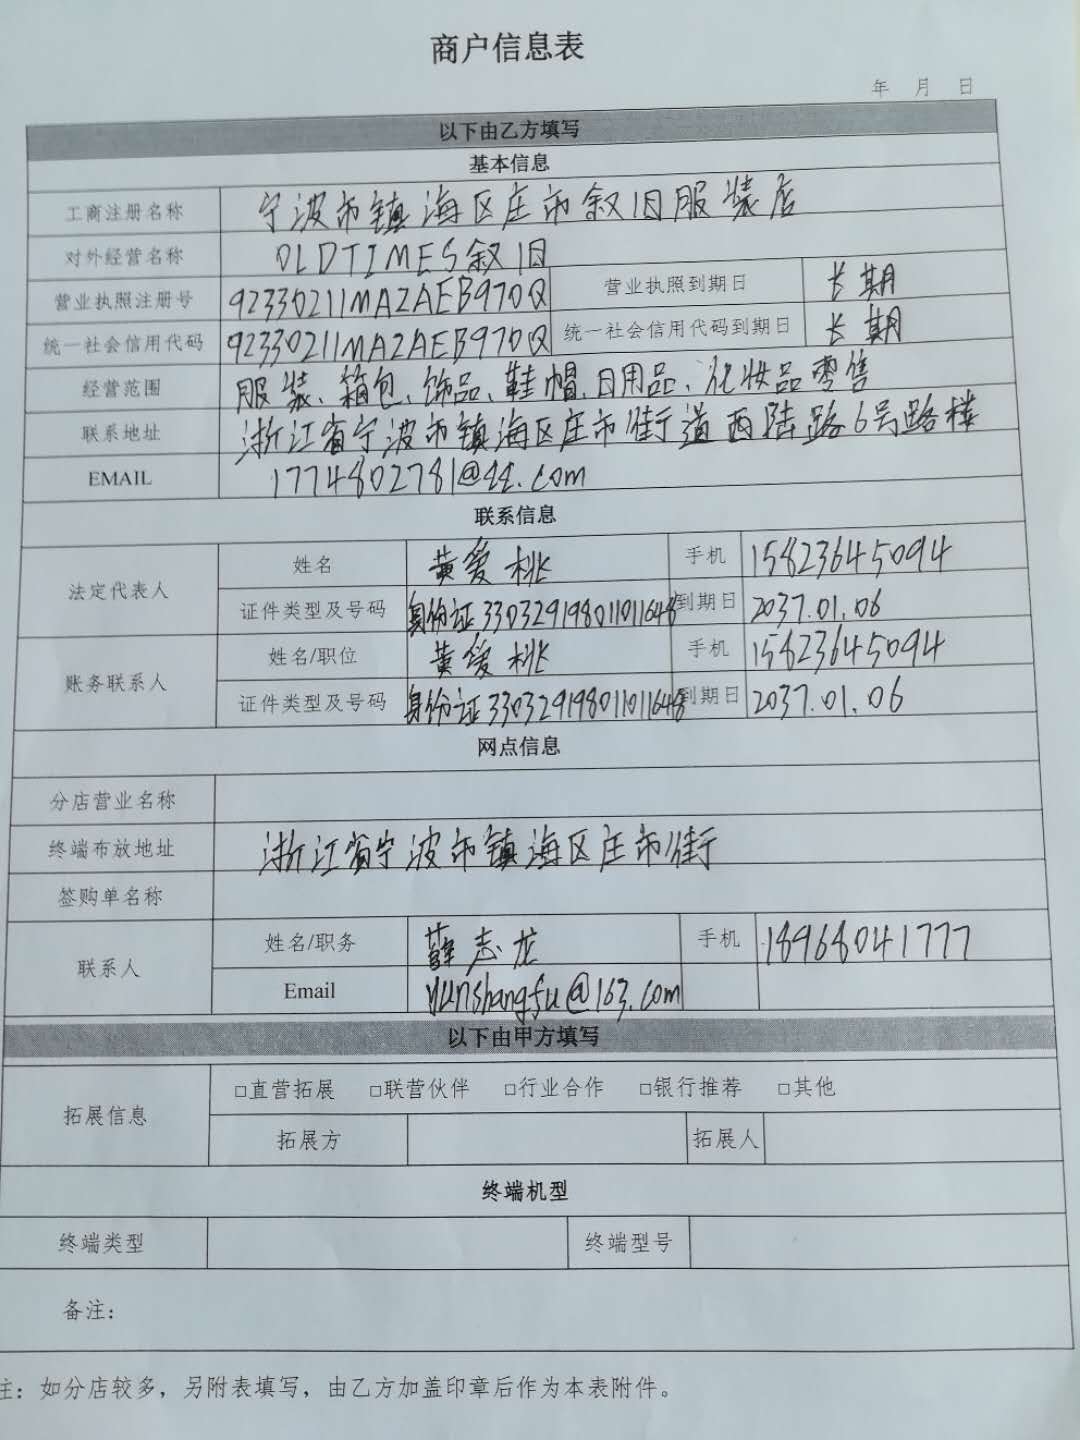 商户信息表
年 月 日
以下由乙方填写
基本信息
工商注册名称 宁波市镇海区庄市叙旧服装店
对外经营名称 OLDTIMES叙旧
营业执照注册号 92330211MA2AEB970Q 营业执照到期日 长期
统一社会信用代码 92330211MA2AEB970Q 统一社会信用代码到期日 长期
经营范围 服装、箱包、饰品、鞋帽、日用品、化妆品零售
联系地址 浙江省宁波市镇海区庄市街道西陆路6号路楼
EMAIL 1774802781@qq.com
联系信息
法定代表人 姓名 黄爱桃 手机 15823645094
证件类型及号码 身份证330329198011011648 到期日 2037.01.06
账务联系人 姓名/职位 黄爱桃 手机 15823645094
证件类型及号码 身份证330329198011011648 到期日 2037.01.06
网点信息
分店营业名称
终端布放地址 浙江省宁波市镇海区庄市街
签购单名称
联系人 姓名/职务 薛志龙 手机 18968041777
Email yunshangfu@163.com
以下由甲方填写
拓展信息 □直营拓展 □联营伙伴 □行业合作 □银行推荐 □其他
拓展方 拓展人
终端机型
终端类型 终端型号
备注：
注：如分店较多，另附表填写，由乙方加盖印章后作为本表附件。